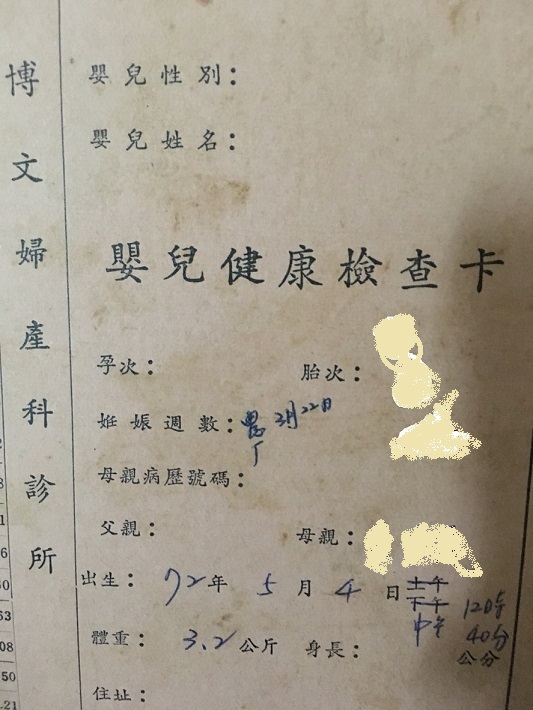 博文婦產科診所
嬰兒性別：
嬰兒姓名：
嬰兒健康檢查卡
孕次：
胎次：
妊娠週數：農 3月22日
母親病歷號碼：
父親：
母親：
出生：72年5月4日上午
下午
中午 12時
40分
體重：3.2公斤 身長： 公分
住址：